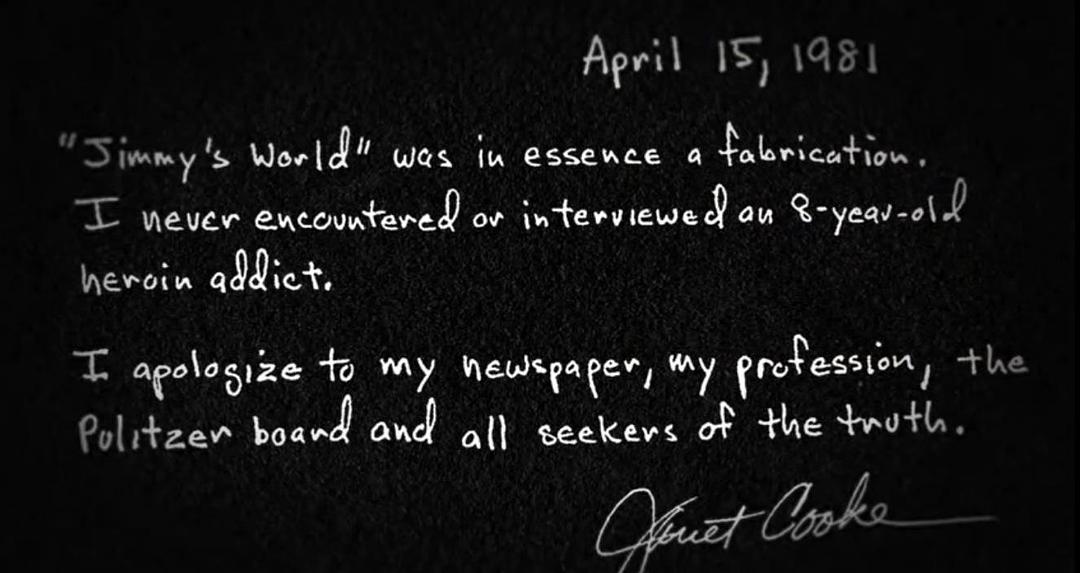 April 15, 1981
"Jimmy's World" was in essence a fabrication.
I never encountered or interviewed an 8-year-old
heroin addict.
I apologize to my newspaper, my profession, the
Pulitzer board and all seekers of the truth.
Janet Cooke